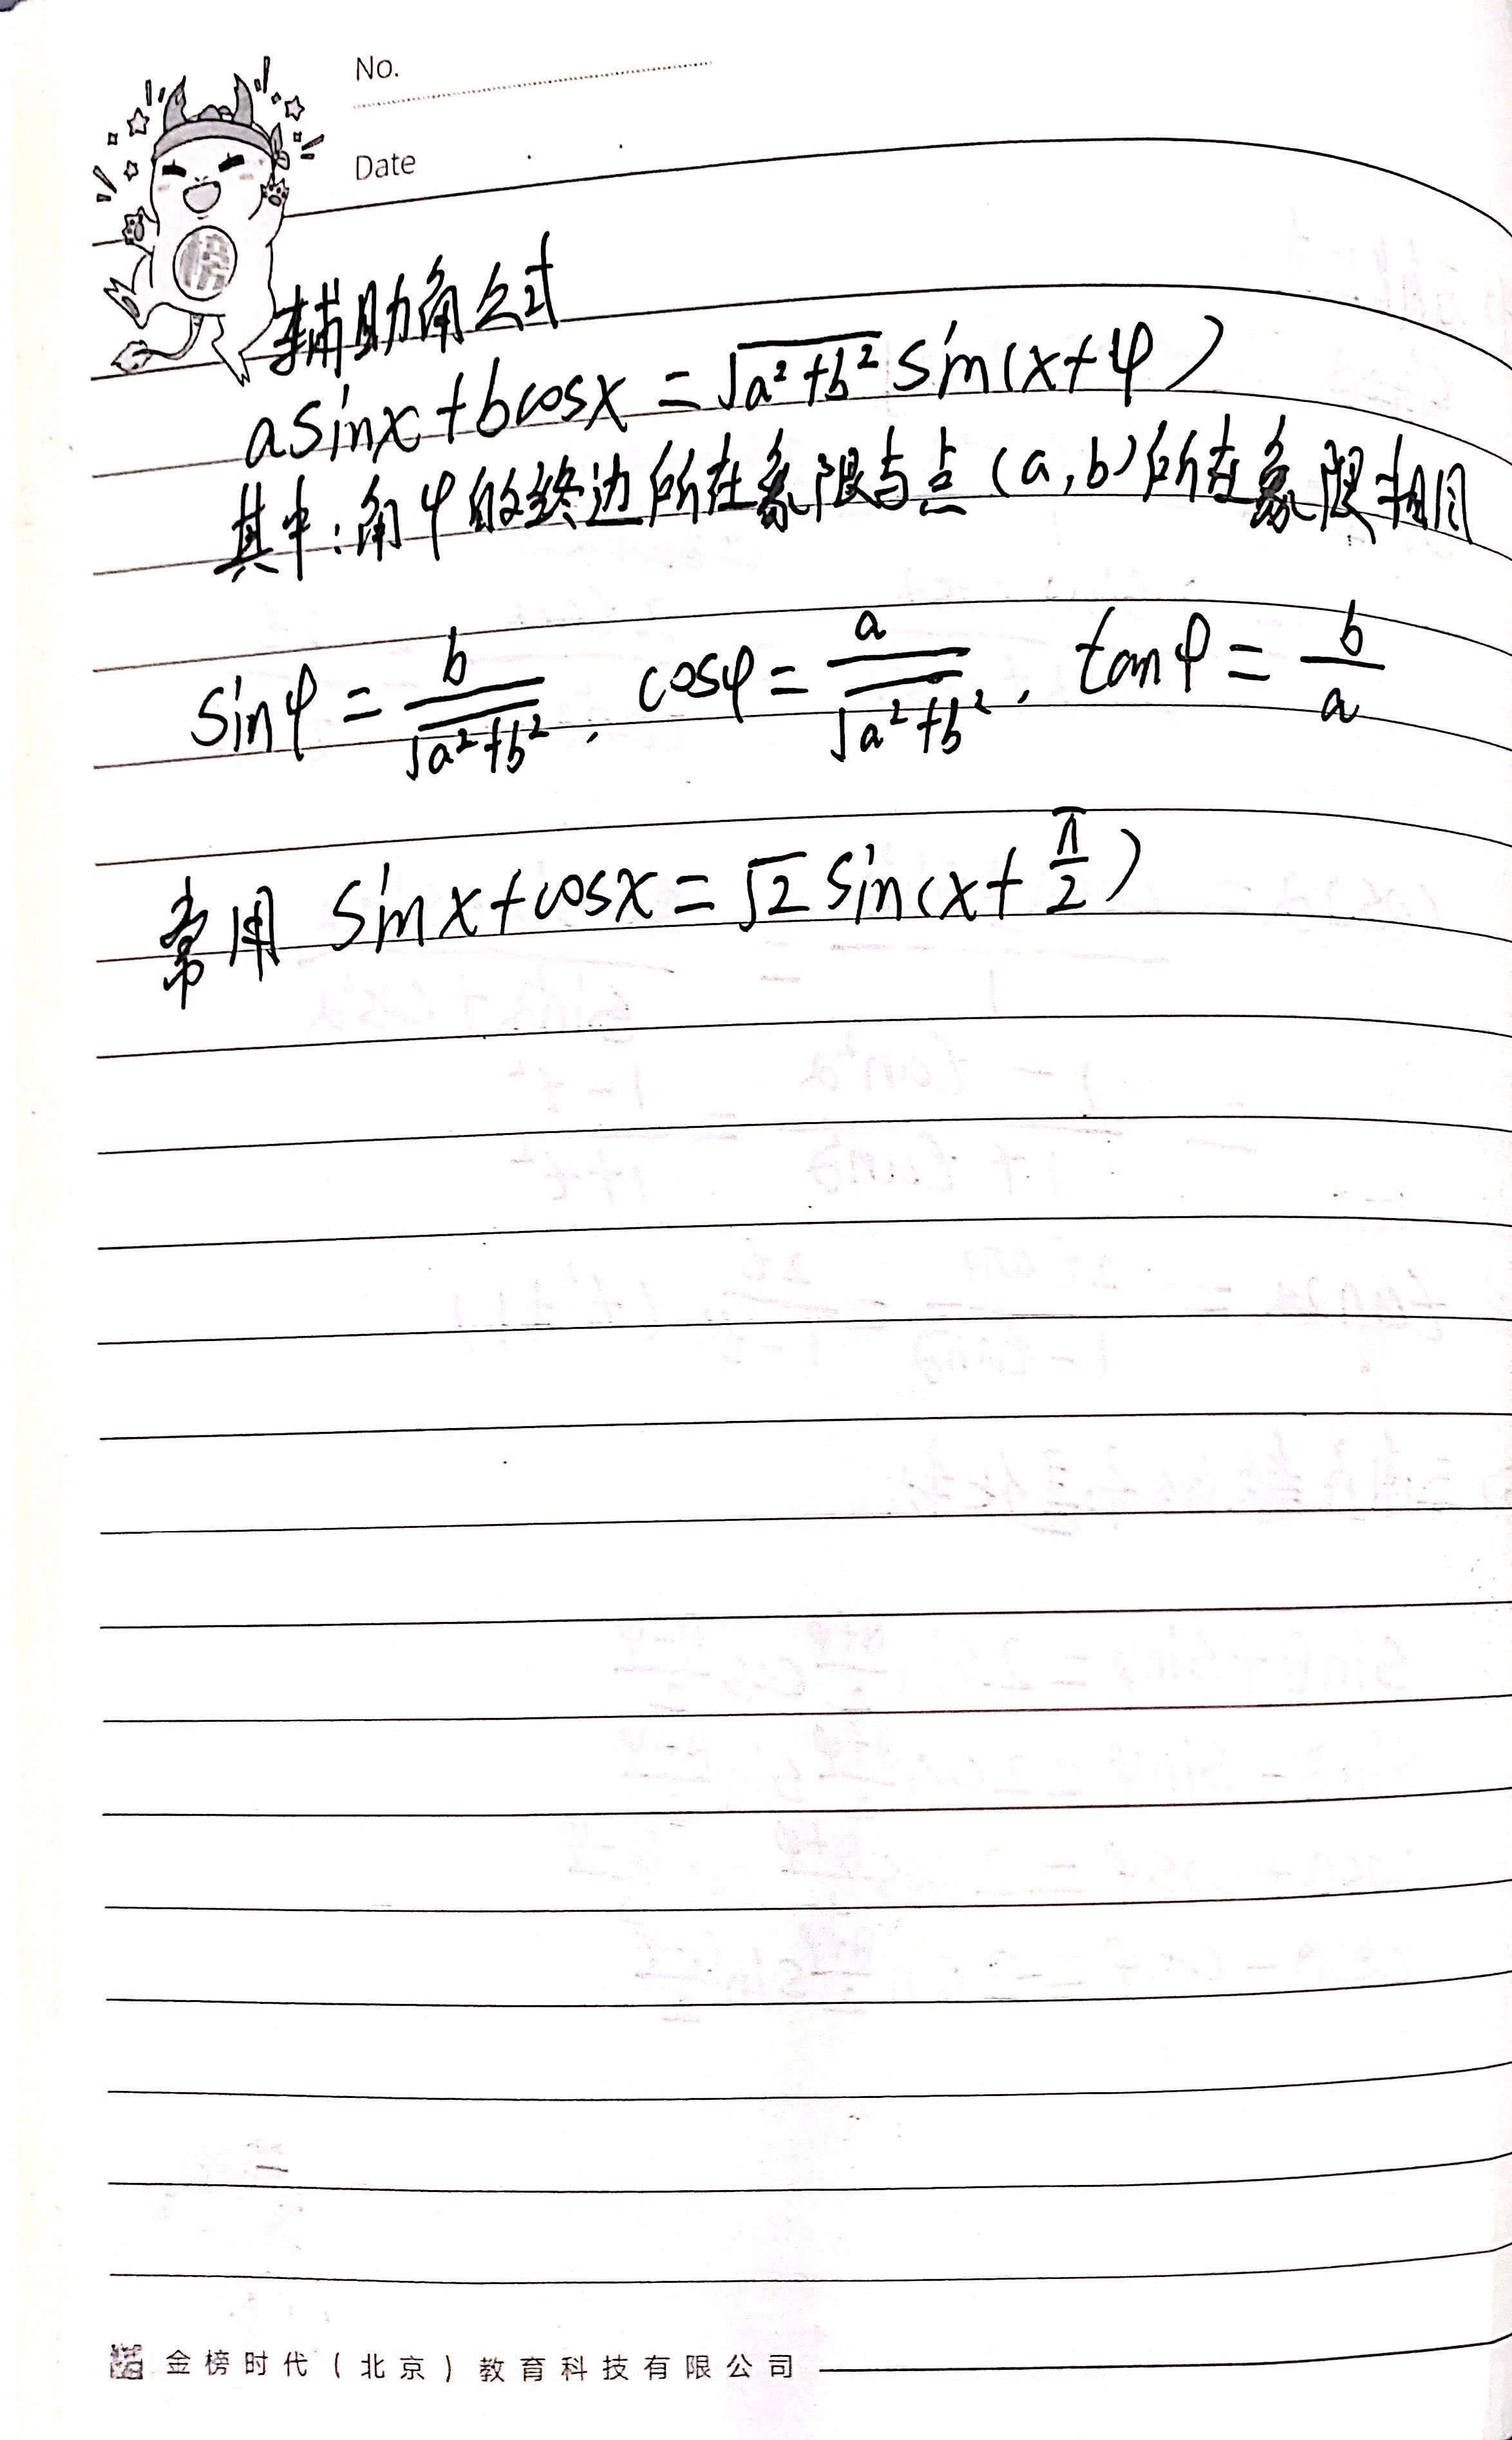 No.
Date
榜
辅助角公式
asinx+bcosx=√(a²+b²) sin(x+φ)
其中:角φ的终边所在象限与点(a,b)所在象限相同
sinφ=b/√(a²+b²), cosφ=a/√(a²+b²), tanφ=b/a
常用 sinx+cosx=√2 sin(x+π/2)
金榜时代(北京)教育科技有限公司